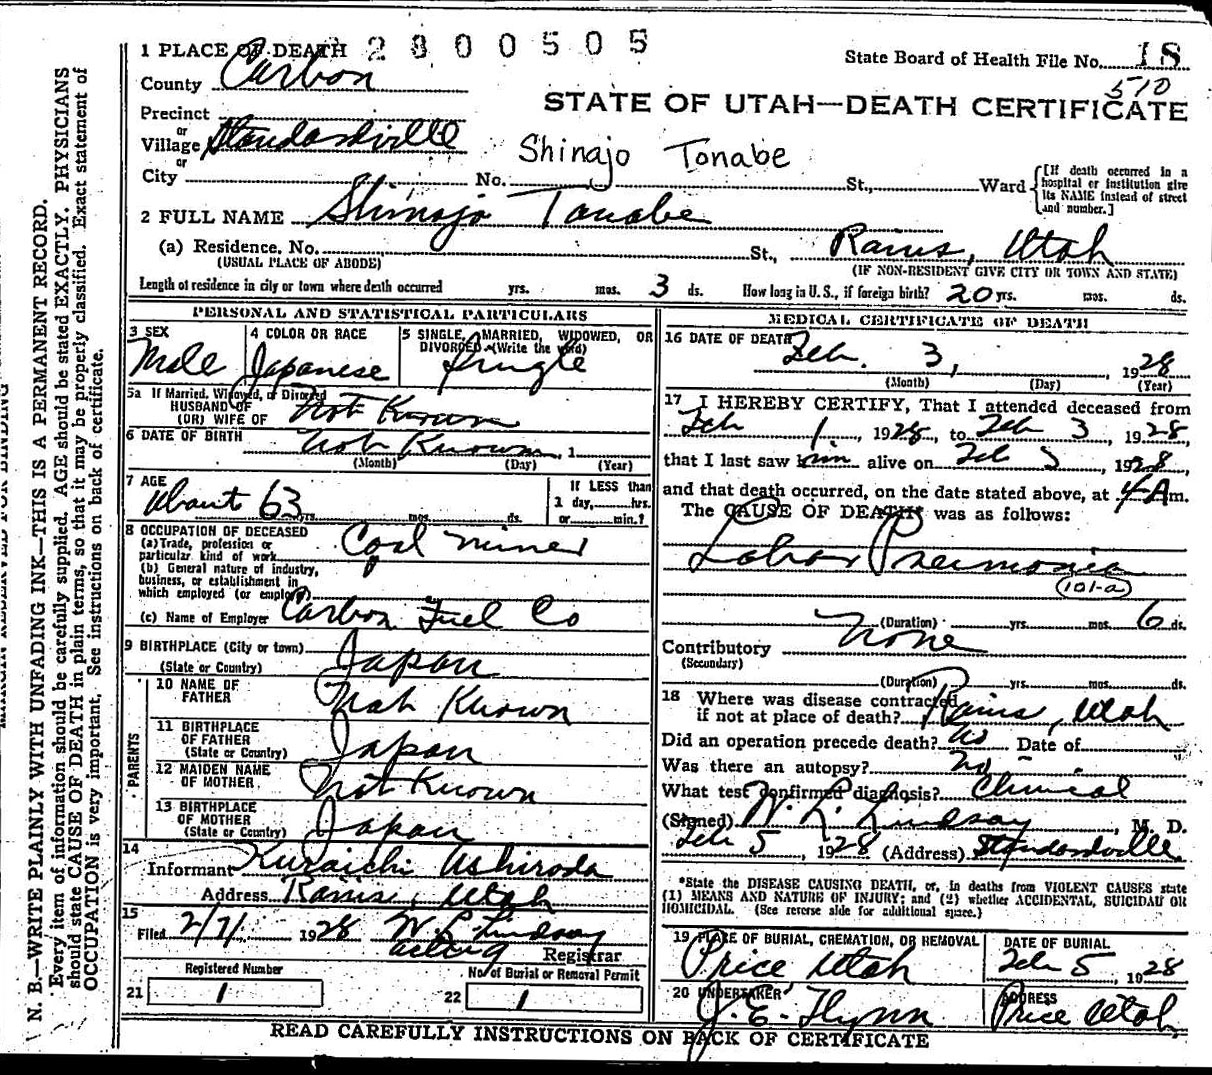 1 PLACE OF DEATH 2 8 0 0 5 0 5
State Board of Health File No. 18
510
County Carbon
STATE OF UTAH—DEATH CERTIFICATE
Precinct
or
Village Standardville
Shinajo Tonabe
or
City No. St., Ward
[If death occurred in a hospital or institution give its NAME instead of street and number.]
2 FULL NAME Shinajo Tanabe
(a) Residence. No. St., Rains, Utah
(USUAL PLACE OF ABODE) (IF NON-RESIDENT GIVE CITY OR TOWN AND STATE)
Length of residence in city or town where death occurred yrs. mos. 3 ds. How long in U.S., if foreign birth? 20 yrs. mos. ds.
PERSONAL AND STATISTICAL PARTICULARS
3 SEX
Male
4 COLOR OR RACE
Japanese
5 SINGLE, MARRIED, WIDOWED, OR
DIVORCED (Write the word)
Single
5a If Married, Widowed, or Divorced
HUSBAND OF
(OR) WIFE OF Not Known
6 DATE OF BIRTH Not Known, 1
(Month) (Day) (Year)
7 AGE
About 63 yrs. mos. ds.
If LESS than
1 day, hrs.
or min.?
8 OCCUPATION OF DECEASED
(a) Trade, profession or
particular kind of work Coal Miner
(b) General nature of industry,
business, or establishment in
which employed (or employer)
(c) Name of Employer Carbon Fuel Co
9 BIRTHPLACE (City or town)
(State or Country) Japan
PARENTS
10 NAME OF
FATHER Not Known
11 BIRTHPLACE
OF FATHER
(State or Country) Japan
12 MAIDEN NAME
OF MOTHER Not Known
13 BIRTHPLACE
OF MOTHER
(State or Country) Japan
14
Informant Kuraichi Ashiroda
Address Rains, Utah
15
Filed 2/7/ 1928 W L Lindsay
acting Registrar
Registered Number
21 1
No. of Burial or Removal Permit
22 1
MEDICAL CERTIFICATE OF DEATH
16 DATE OF DEATH
Feb. 3, 1928
(Month) (Day) (Year)
17 I HEREBY CERTIFY, That I attended deceased from
Feb 1, 1928, to Feb 3, 1928,
that I last saw him alive on Feb 3, 1928,
and that death occurred, on the date stated above, at 4 A m.
The CAUSE OF DEATH* was as follows:
Lobar Pneumonia
101-a
(Duration) yrs. mos. 6 ds.
Contributory None
(Secondary)
(Duration) yrs. mos. ds.
18 Where was disease contracted
if not at place of death? Rains, Utah
Did an operation precede death? No Date of
Was there an autopsy? No
What test confirmed diagnosis? Clinical
(Signed) W. L. Lindsay, M. D.
Feb 5, 1928 (Address) Standardville
*State the DISEASE CAUSING DEATH, or, in deaths from VIOLENT CAUSES state
(1) MEANS AND NATURE OF INJURY; and (2) whether ACCIDENTAL, SUICIDAL OR
HOMICIDAL. (See reverse side for additional space.)
19 PLACE OF BURIAL, CREMATION, OR REMOVAL
Price, Utah
DATE OF BURIAL
Feb 5, 1928
20 UNDERTAKER
J. E. Flynn
ADDRESS
Price Utah
READ CAREFULLY INSTRUCTIONS ON BACK OF CERTIFICATE
N. B.—WRITE PLAINLY WITH UNFADING INK—THIS IS A PERMANENT RECORD.
Every item of information should be carefully supplied. AGE should be stated EXACTLY. PHYSICIANS
should state CAUSE OF DEATH in plain terms, so that it may be properly classified. Exact statement of
OCCUPATION is very important. See instructions on back of certificate.